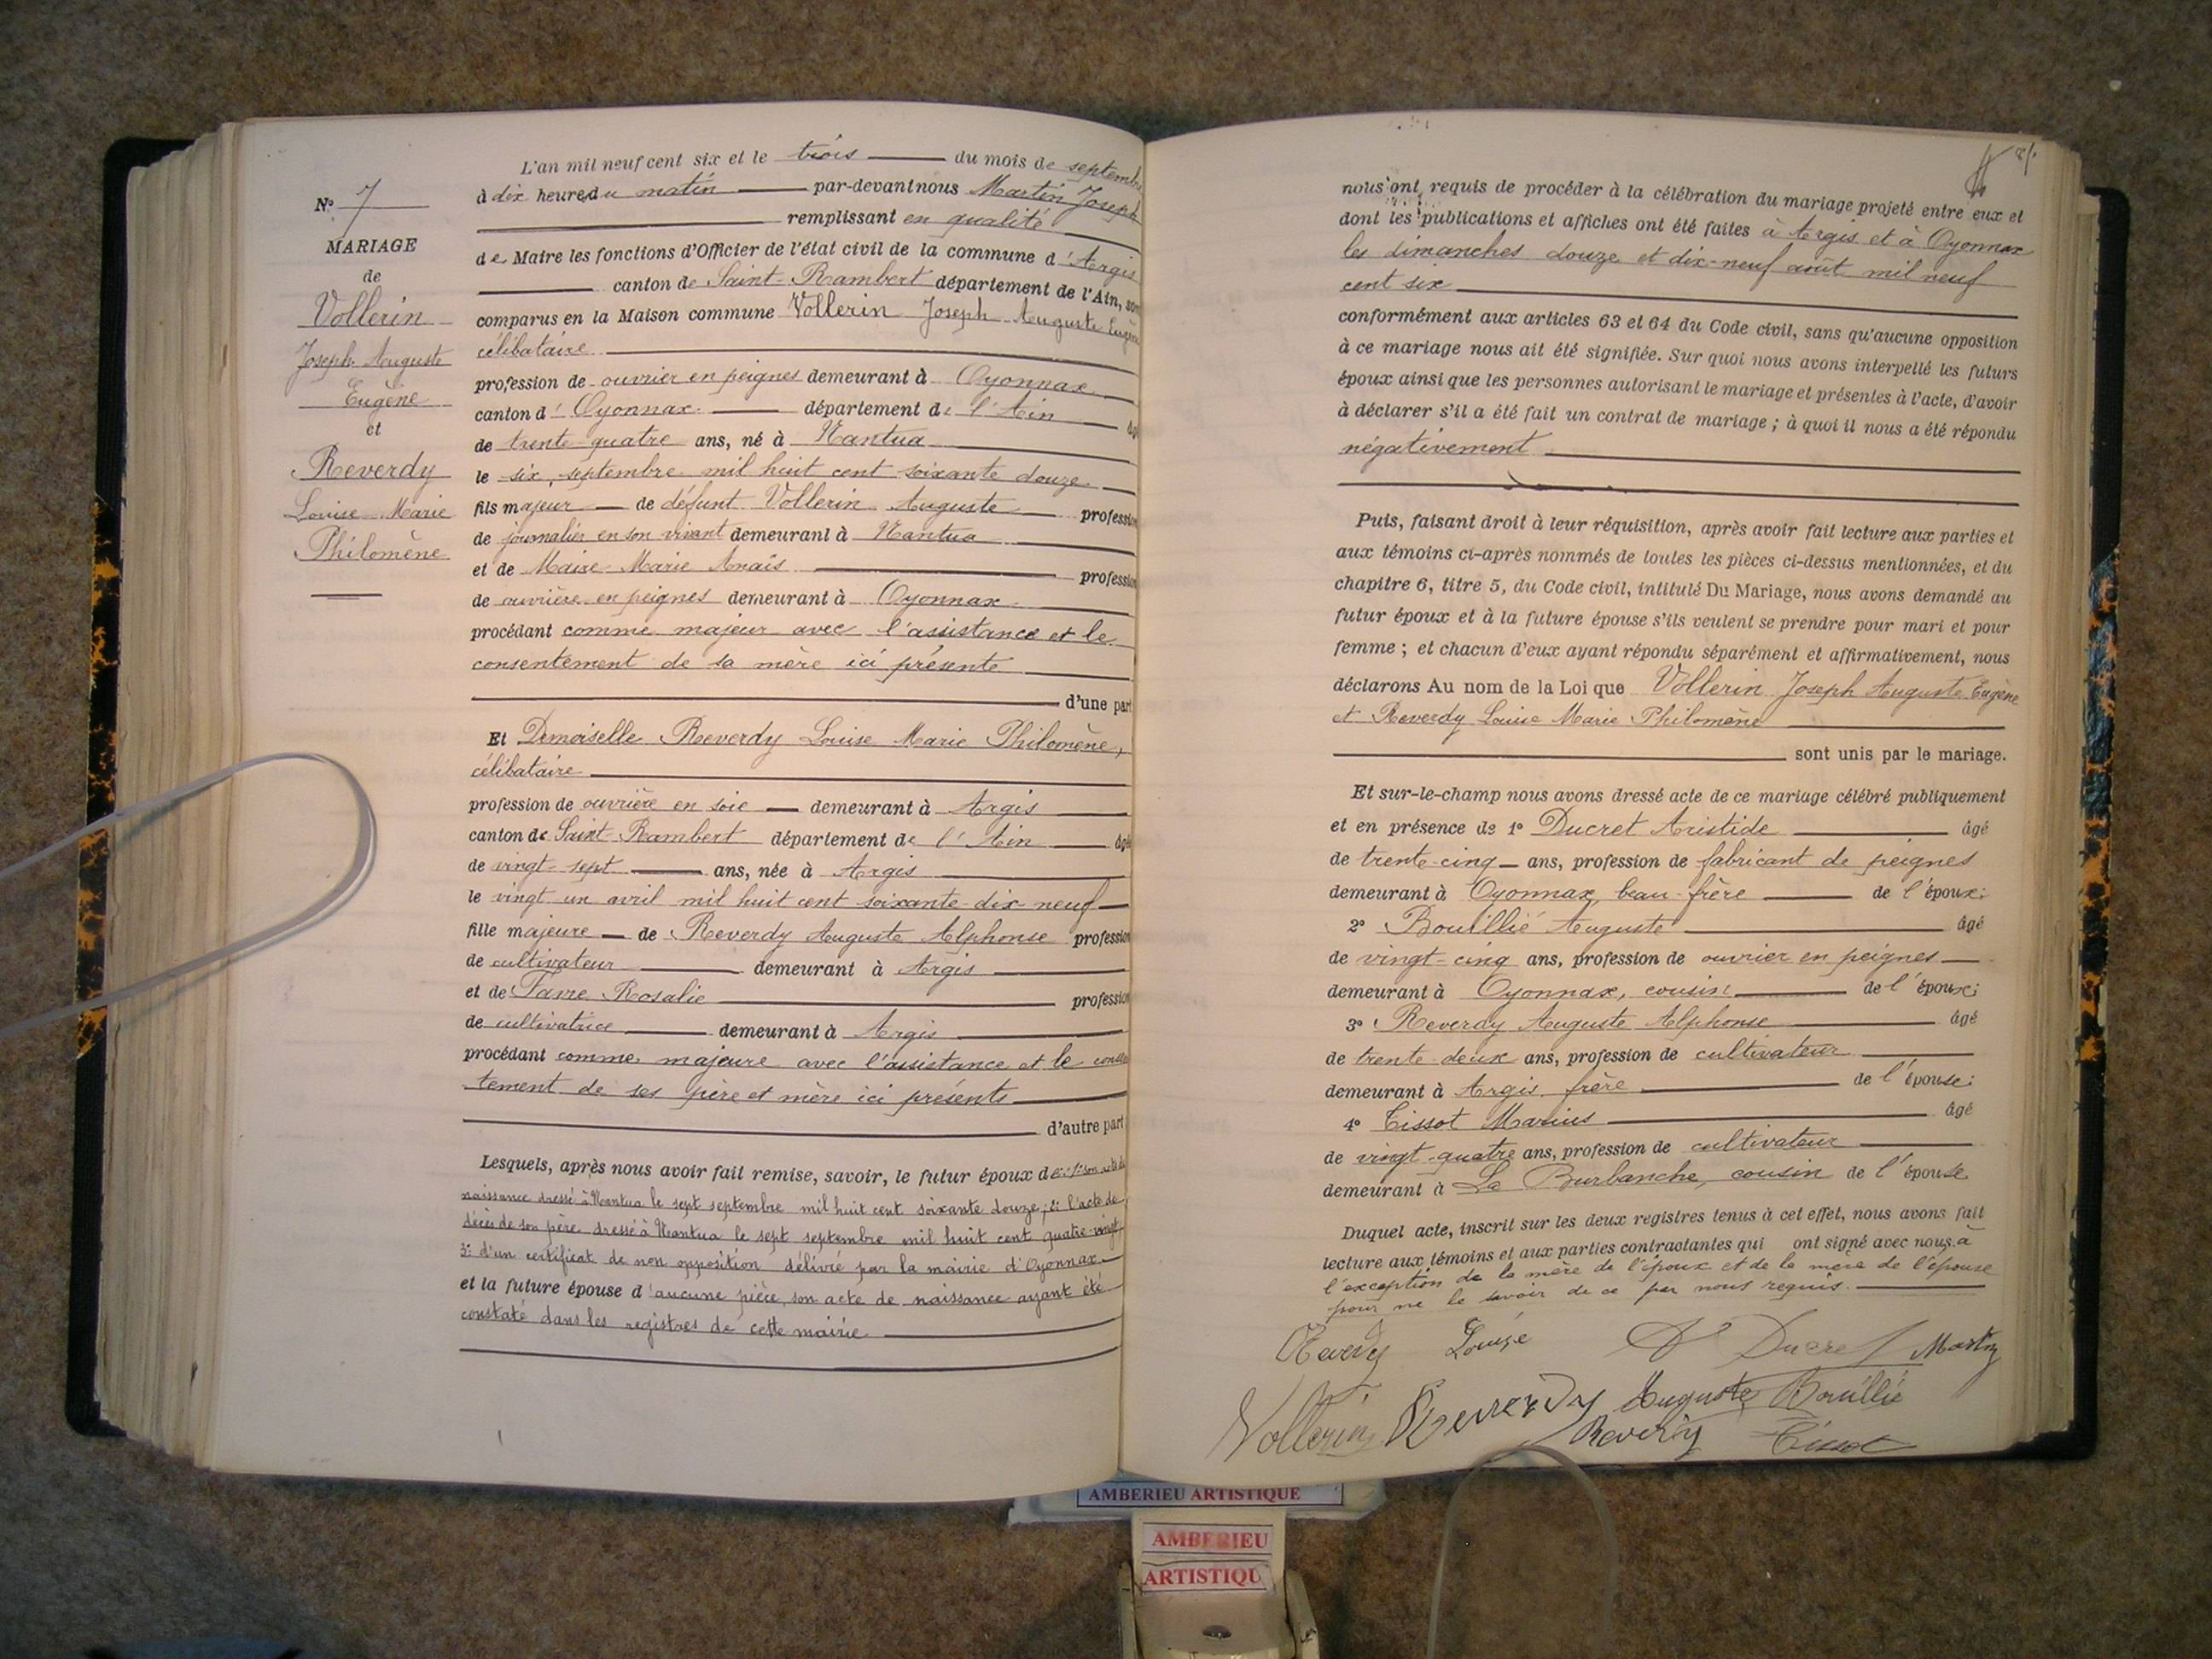 N° 7
MARIAGE
de
Vollerin
Joseph Auguste
Eugène
et
Reverdy
Louise Marie
Philomène
L'an mil neuf cent six et le trois du mois de septembre
à dix heures du matin par-devant nous Martin Joseph
remplissant en qualité
de Maire les fonctions d'Officier de l'état civil de la commune d'Argis
canton de Saint-Rambert département de l'Ain, sont
comparus en la Maison commune Vollerin Joseph Auguste Eugène
célibataire
profession de ouvrier en peignes demeurant à Oyonnax
canton d'Oyonnax département de l'Ain âgé
de trente quatre ans, né à Nantua
le six septembre mil huit cent soixante douze
fils majeur de défunt Vollerin Auguste profession
de journalier en son vivant demeurant à Nantua
et de Maire Marie Anaïs profession
de ouvrière en peignes demeurant à Oyonnax
procédant comme majeur avec l'assistance et le
consentement de sa mère ici présente
d'une part
Et Demoiselle Reverdy Louise Marie Philomène,
célibataire
profession de ouvrière en soie demeurant à Argis
canton de Saint-Rambert département de l'Ain âgée
de vingt-sept ans, née à Argis
le vingt un avril mil huit cent soixante-dix neuf
fille majeure de Reverdy Auguste Alphonse profession
de cultivateur demeurant à Argis
et de Favre Rosalie profession
de cultivatrice demeurant à Argis
procédant comme majeure avec l'assistance et le consen
tement de ses père et mère ici présents
d'autre part
Lesquels, après nous avoir fait remise, savoir, le futur époux de: 1° son acte de
naissance dressé à Nantua le sept septembre mil huit cent soixante douze; 2° l'acte de
décès de son père dressé à Nantua le sept septembre mil huit cent quatre-vingt
3° d'un certificat de non opposition délivré par la mairie d'Oyonnax
et la future épouse d'aucune pièce, son acte de naissance ayant été
constaté dans les registres de cette mairie
nous ont requis de procéder à la célébration du mariage projeté entre eux et
dont les publications et affiches ont été faites à Argis et à Oyonnax
les dimanches douze et dix-neuf août mil neuf
cent six
conformément aux articles 63 et 64 du Code civil, sans qu'aucune opposition
à ce mariage nous ait été signifiée. Sur quoi nous avons interpellé les futurs
époux ainsi que les personnes autorisant le mariage et présentes à l'acte, d'avoir
à déclarer s'il a été fait un contrat de mariage ; à quoi il nous a été répondu
négativement
Puis, faisant droit à leur réquisition, après avoir fait lecture aux parties et
aux témoins ci-après nommés de toutes les pièces ci-dessus mentionnées, et du
chapitre 6, titre 5, du Code civil, intitulé Du Mariage, nous avons demandé au
futur époux et à la future épouse s'ils veulent se prendre pour mari et pour
femme ; et chacun d'eux ayant répondu séparément et affirmativement, nous
déclarons Au nom de la Loi que Vollerin Joseph Auguste Eugène
et Reverdy Louise Marie Philomène
sont unis par le mariage.
Et sur-le-champ nous avons dressé acte de ce mariage célébré publiquement
et en présence de 1° Ducret Aristide âgé
de trente-cinq ans, profession de fabricant de peignes
demeurant à Oyonnax, beau-frère de l'époux;
2° Bouillié Auguste âgé
de vingt-cinq ans, profession de ouvrier en peignes
demeurant à Oyonnax, cousin de l'époux;
3° Reverdy Auguste Alphonse âgé
de trente-deux ans, profession de cultivateur
demeurant à Argis, frère de l'épouse;
4° Tissot Marius âgé
de vingt-quatre ans, profession de cultivateur
demeurant à La Burbanche, cousin de l'épouse
Duquel acte, inscrit sur les deux registres tenus à cet effet, nous avons fait
lecture aux témoins et aux parties contractantes qui ont signé avec nous à
l'exception de la mère de l'époux et de la mère de l'épouse
pour ne le savoir de ce par nous requis.
Reverdy Louise Ducret Martin
Vollerin Reverdy Auguste Bouillié
Reverdy Tissot
AMBERIEU ARTISTIQUE
AMBERIEU
ARTISTIQU